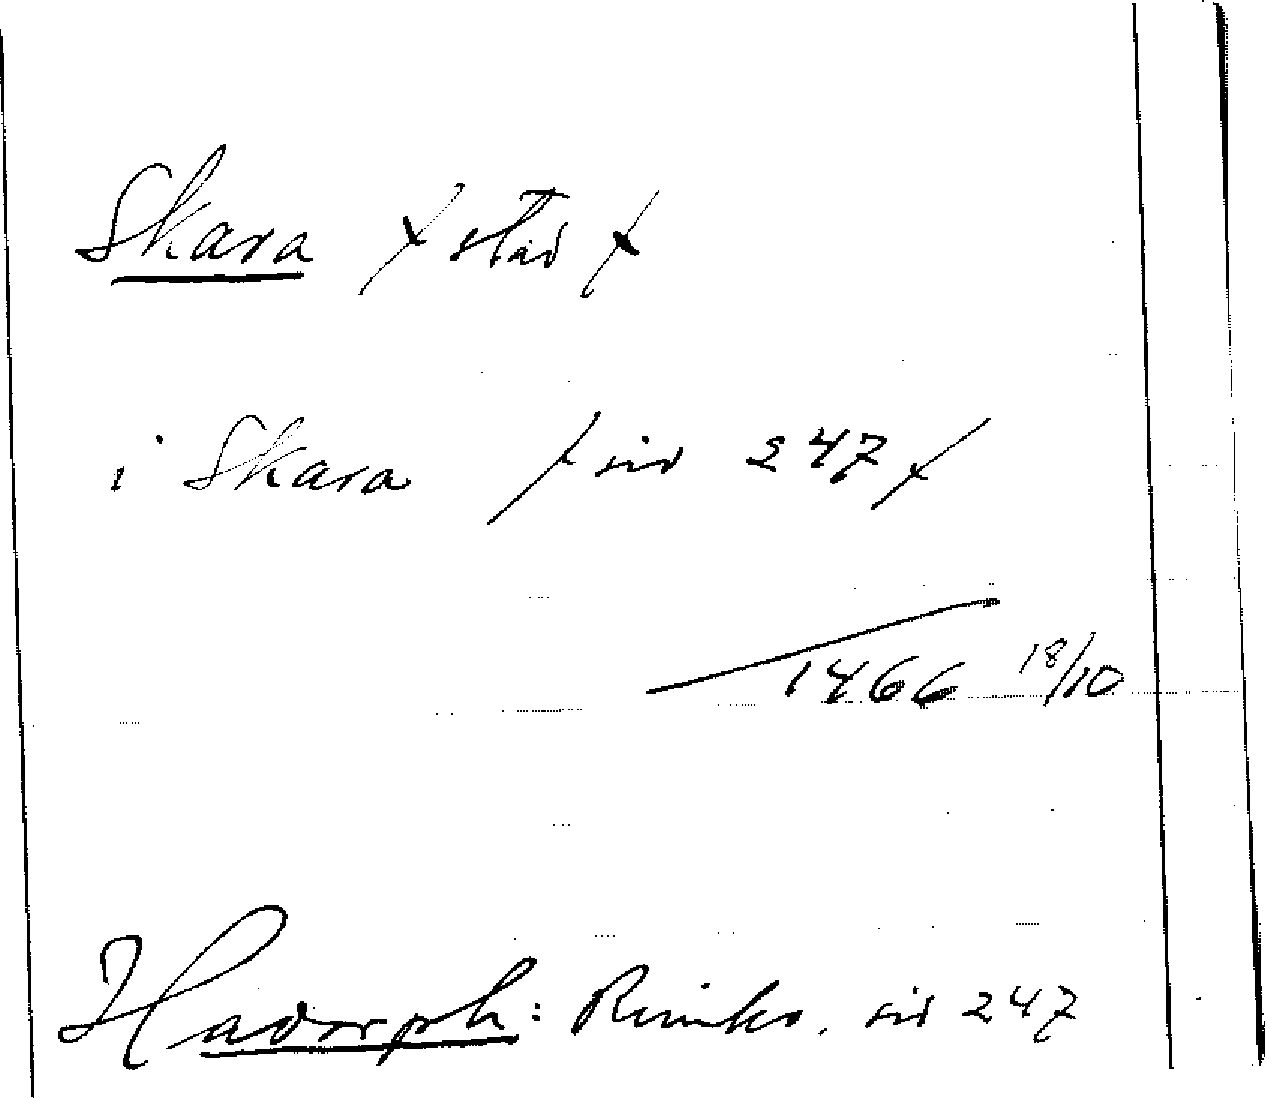 Skara / stad /
i Skara / sid 247 /
1466 18/10
Hadorph: Rimkr. sid 247